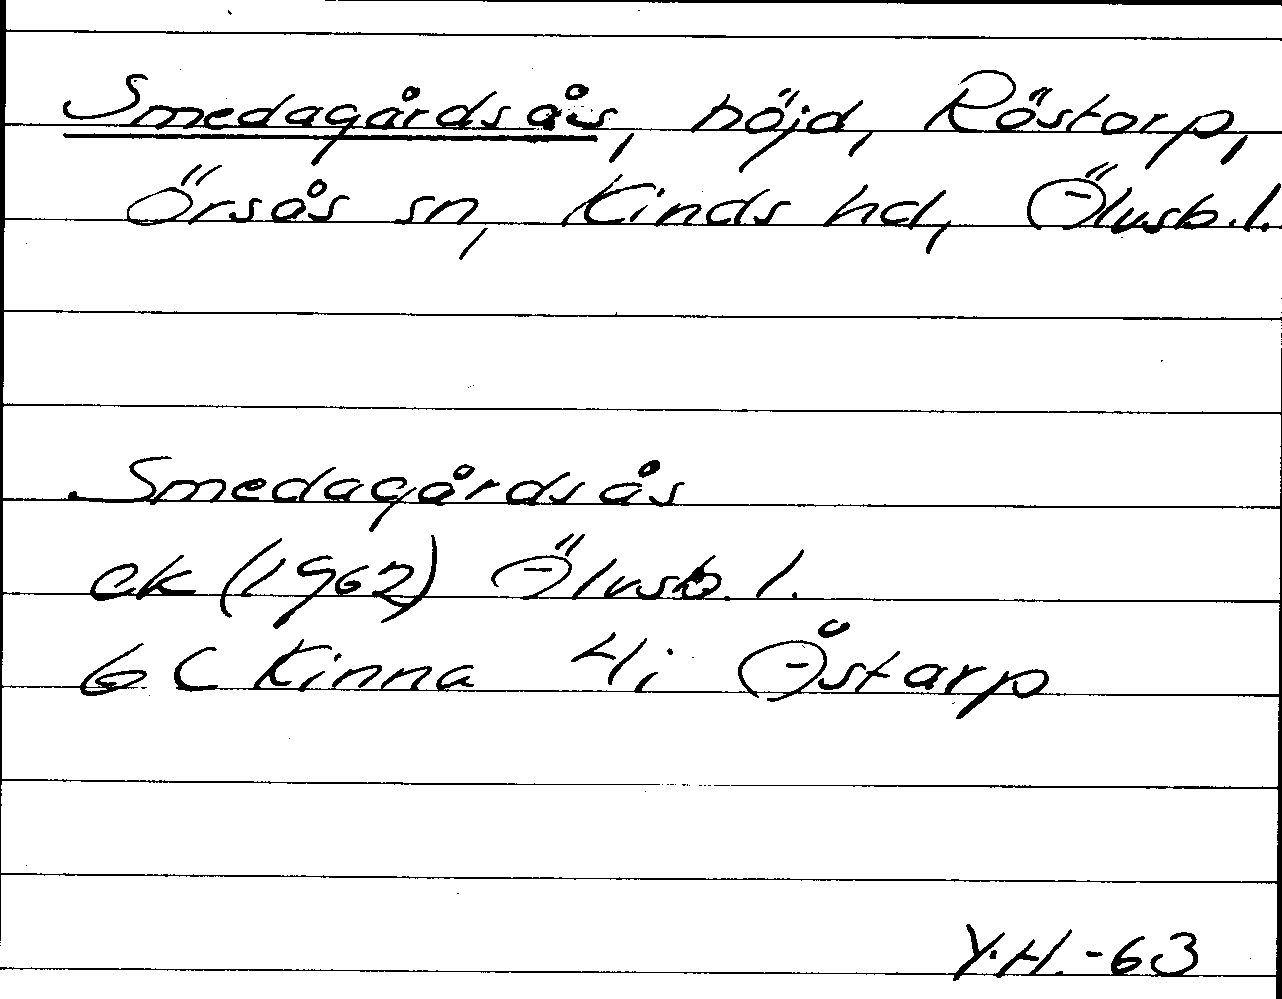 Smedagårdsås, höjd, Röstorp,
Örsås sn, Kinds hd, Älvsb. l.
Smedagårdsås
ek (1962) Älvsb. l.
6 C Kinna 4i Åstarp
Y.H. -63